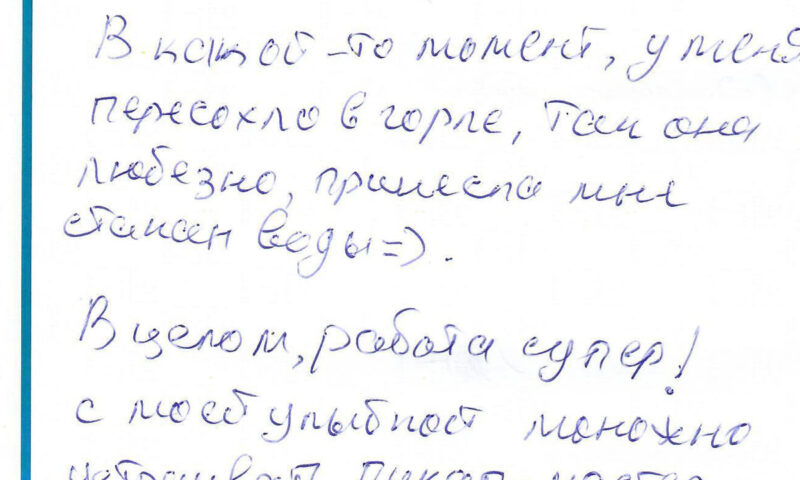 В какой-то момент, у меня
пересохло в горле, так она
любезно, принесла мне
стакан воды =).
В целом, работа супер!
с моей улыбкой можно